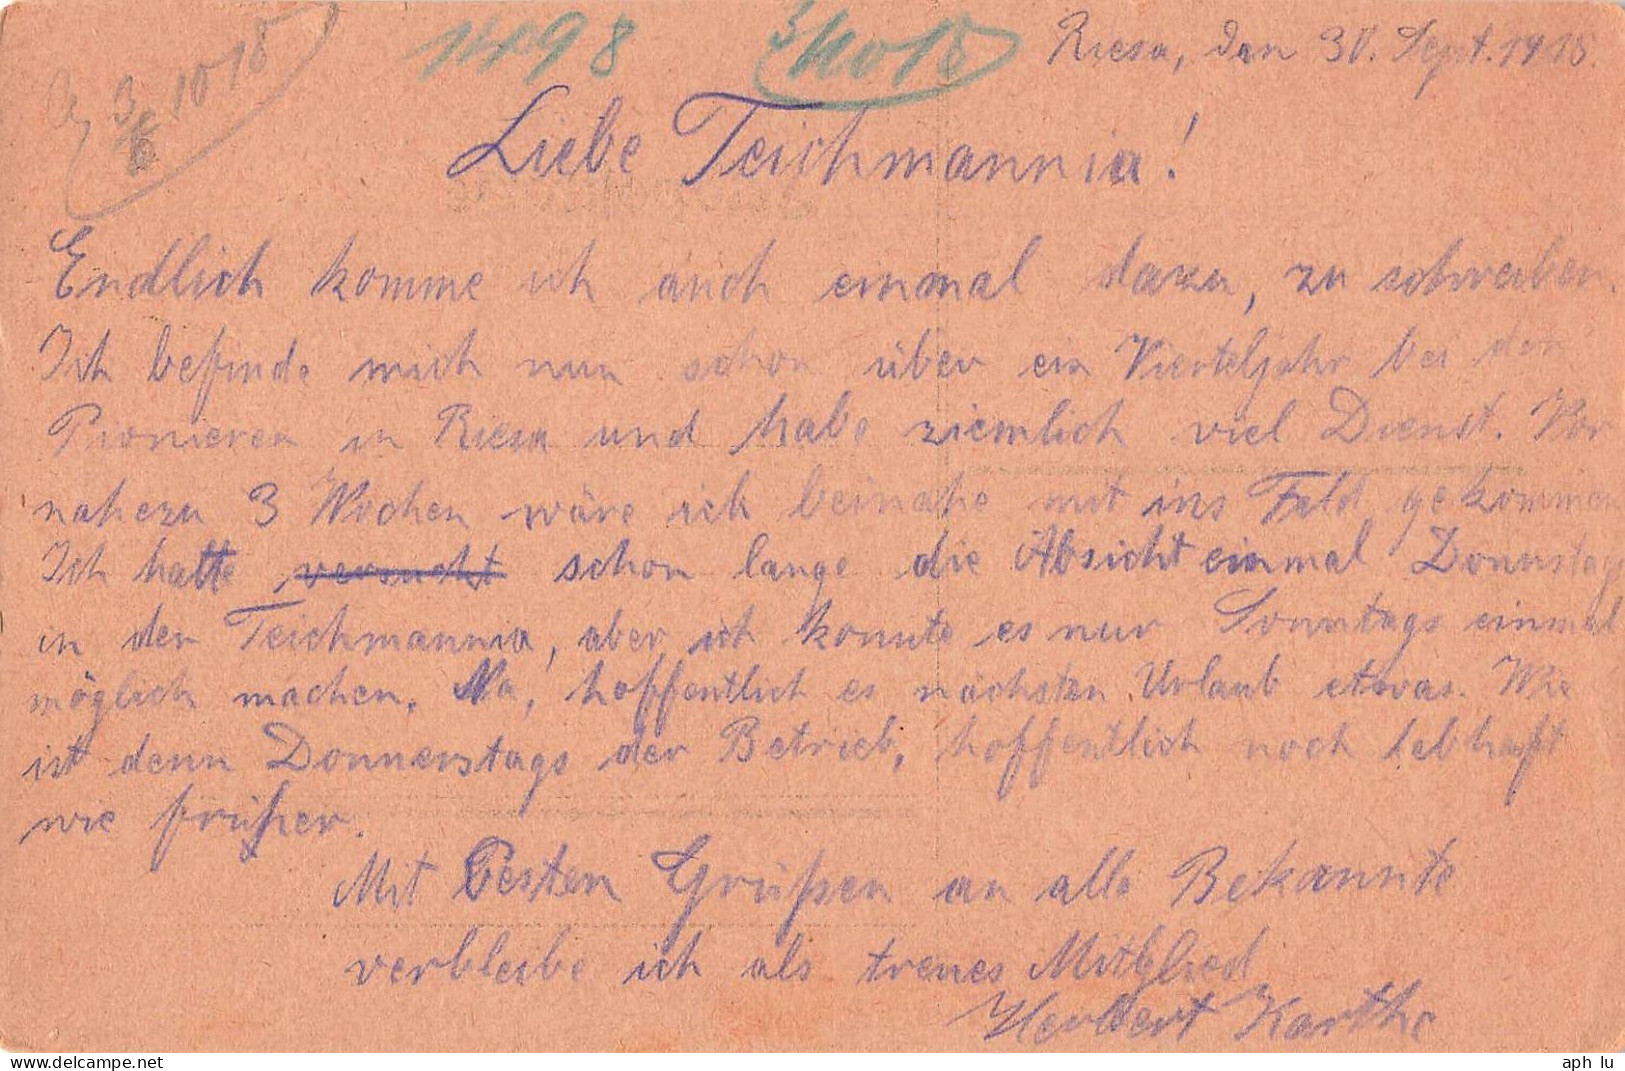 3/10 18
14198
3/10 18
Riesa, den 30. Sept. 1918.
Liebe Teichmannia!
Endlich komme ich auch einmal dazu, zu schreiben.
Ich befinde mich nun schon über ein Vierteljahr bei den
Pionieren in Riesa und habe ziemlich viel Dienst. Vor
nahezu 3 Wochen wäre ich beinahe mit ins Feld gekommen
Ich hatte versucht schon lange die Absicht einmal Donnstags
in der Teichmannia, aber ich konnte es nur Sonntags einmal
möglich machen. Na, hoffentlich es nächsten Urlaub etwas. Wie
ist denn Donnerstags der Betrieb, hoffentlich noch lebhaft
wie früher.
Mit besten Grüßen an alle Bekannte
verbleibe ich als treues Mitglied
Herbert Karthe
aph lu